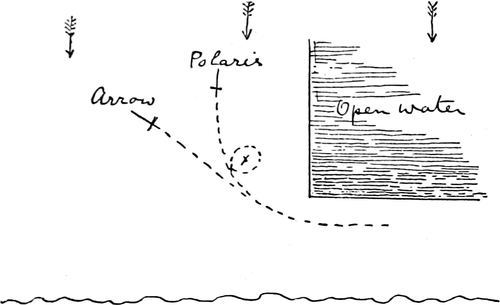 Polaris
Arrow
Open water